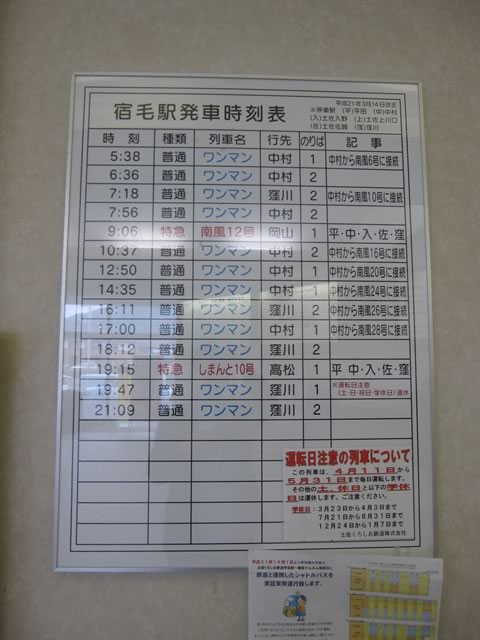 宿毛駅発車時刻表
平成21年3月14日改正
※停車駅 (平)平田 (中)中村
(入)土佐入野 (上)土佐上川口
(佐)土佐佐賀 (窪)窪川
時刻 種類 列車名 行先 のりば 記事
5:38 普通 ワンマン 中村 1 中村から南風6号に接続
6:36 普通 ワンマン 中村 2
7:18 普通 ワンマン 窪川 2 中村から南風10号に接続
7:56 普通 ワンマン 中村 2
9:06 特急 南風12号 岡山 1 平・中・入・佐・窪
10:37 普通 ワンマン 中村 2 中村から南風16号に接続
12:50 普通 ワンマン 中村 1 中村から南風20号に接続
14:35 普通 ワンマン 中村 1 中村から南風24号に接続
16:11 普通 ワンマン 窪川 2 中村から南風26号に接続
17:00 普通 ワンマン 中村 1 中村から南風28号に接続
18:12 普通 ワンマン 窪川 2
19:15 特急 しまんと10号 高松 1 平・中・入・佐・窪
19:47 普通 ワンマン 窪川 1 ※運転日注意
(土・日・祝日・学休日)運休
21:09 普通 ワンマン 窪川 2
運転日注意の列車について
この列車は、4月11日から
5月31日まで毎日運転します。
その他の土、休日と以下の学休
日は運休します。ご注意ください。
学休日:3月23日から4月3日まで
7月21日から8月31日まで
12月24日から1月7日まで
土佐くろしお鉄道株式会社
鉄道と連携したシャトルバスを
実証実験運行致します。